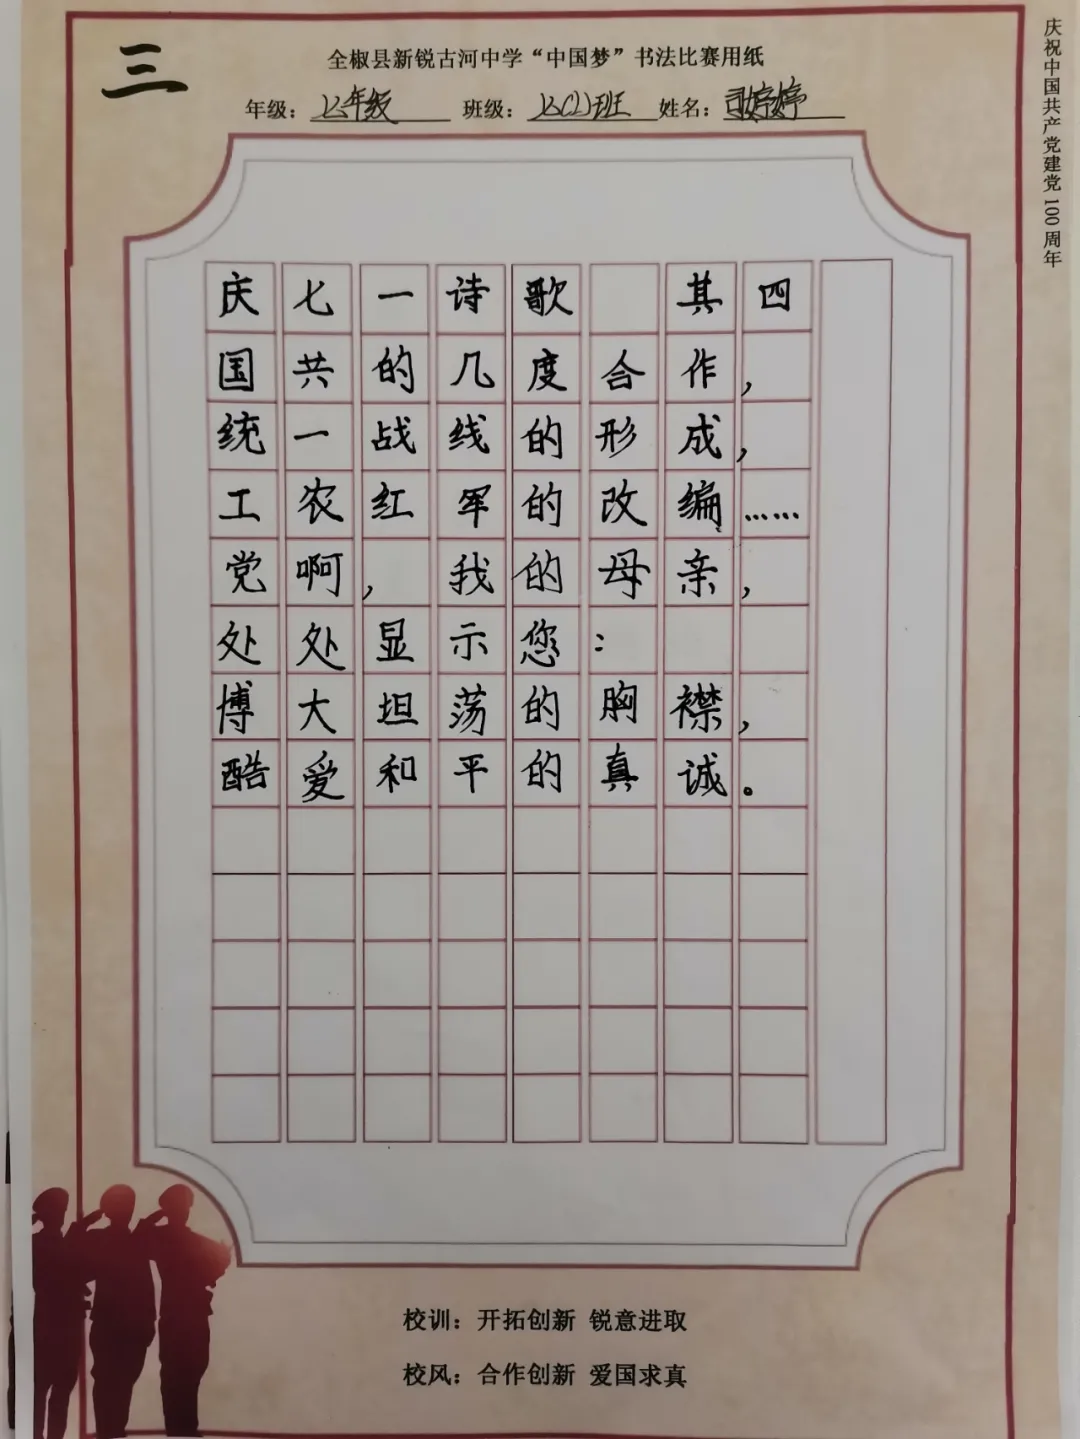 三
全椒县新锐古河中学“中国梦”书法比赛用纸
年级：七年级 班级：七(2)班 姓名：司婷婷
庆祝中国共产党建党100周年
庆七一诗歌 其四
国共的几度合作，
统一战线的形成，
工农红军的改编……
党啊，我的母亲，
处处显示您：
博大坦荡的胸襟，
酷爱和平的真诚。
校训：开拓创新 锐意进取
校风：合作创新 爱国求真